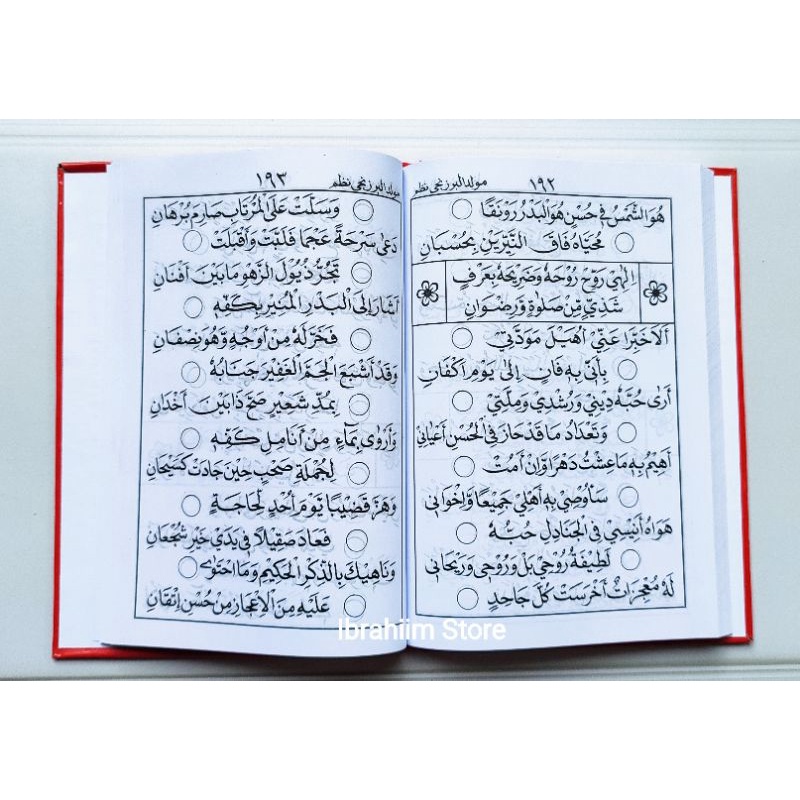 ١٩٢ مولد البرزنجي نظم
هُوَ الشَّمْسُ فِي حُسْنٍ هُوَ الْبَدْرُ رَوْنَقًا
مُحَيَّاهُ فَاقَ النَّيِّرَيْنِ بِحُسْبَانِ
اِلٰهِي رَوِّحْ رُوْحَهُ وَضَرِيْحَهُ بِعَرْفٍ
شَذِيٍّ مِّنْ صَلَوةٍ وَرِضْوَانِ
اَلَا خَبِّرَا عَنِّيْ أُهَيْلَ مَوَدَّتِيْ
بِأَنِّيْ بِهِ فَانٍ اِلٰى يَوْمِ اَكْفَانِ
أَرٰى حُبَّهُ دِيْنِيْ وَرُشْدِيْ وَمِلَّتِيْ
وَتَعْدَادُ مَا قَدْ حَازَ فِي الْحُسْنِ اَعْيَانِيْ
اَهِيْمُ بِهِ مَا عِشْتُ دَهْرًا وَّاِنْ اَمُتْ
سَأُوْصِيْ بِهِ اَهْلِيْ جَمِيْعًا وَّاِخْوَانِيْ
هَوَاهُ اَنِيْسِيْ فِي الْجَنَادِلِ حُبُّهُ
لَطِيْفَةُ رُوْحِيْ بَلْ وَرَوْحِيْ وَرَيْحَانِيْ
لَهُ مُعْجِزَاتٌ اَخْرَسَتْ كُلَّ جَاحِدٍ
١٩٣ مولد البرزنجي نظم
وَسَلَّتْ عَلَى الْمُرْتَابِ صَارِمَ بُرْهَانِ
دَعٰى سَرْحَةً عَجْمَا فَلَبَّتْ وَأَقْبَلَتْ
تَجُرُّ ذُيُوْلَ الزَّهْوِ مَا بَيْنَ اَفْنَانِ
اَشَارَ اِلَى الْبَدْرِ الْمُنِيْرِ بِكَفِّهِ
فَخَرَّ لَهُ مِنْ اَوْجِهِ وَّهُوَ نِصْفَانِ
وَقَدْ أَشْبَعَ الْجَمَّ الْغَفِيْرَ جَنَابُهُ
بِمُدِّ شَعِيْرٍ صَحَّ ذَا بَيْنَ اَخْدَانِ
وَأَرْوٰى بِمَاءٍ مِنْ أَنَامِلِ كَفِّهِ
لِجُمْلَةِ صَحْبٍ حِيْنَ جَادَتْ كَسَيْحَانِ
وَهَزَّ قَضِيْبًا يَّوْمَ اُحُدٍ لِحَاجَةٍ
فَعَادَ صَقِيْلًا فِيْ يَدَيْ خَيْرِ شُجْعَانِ
وَنَاهِيْكَ بِالذِّكْرِ الْحَكِيْمِ وَمَا احْتَوٰى
عَلَيْهِ مِنَ الْاِعْجَازِ مِنْ حُسْنِ اِتْقَانِ
Ibrahiim Store